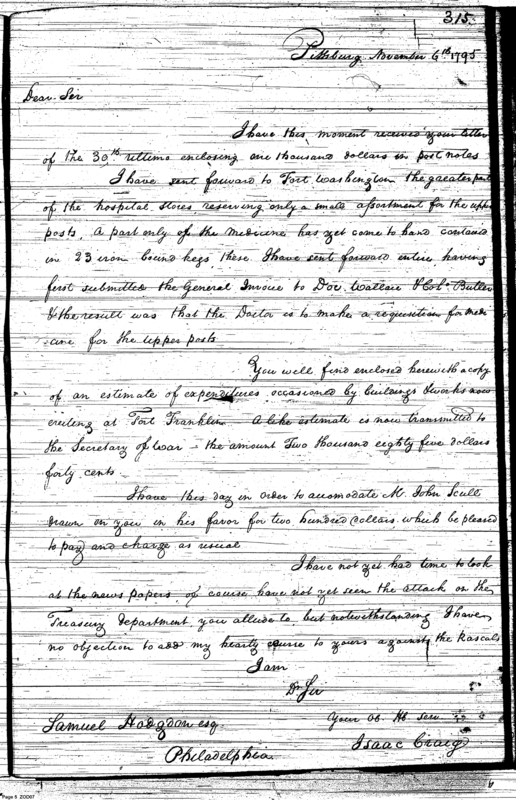 315.
Pittsburg November 6th 1795
Dear Ser
I have this moment received your letter
of the 30th ultimo enclosing one thousand dollars in post notes
I have sent forward to Fort Washington the greater part
of the hospital stores, reserving only a small assortment for the upper
posts, A part only of the medicine has yet come to hand contained
in 23 iron bound kegs these I have sent forward entire having
first submitted the General Invoice to Doc. Wallace & Colo. Butler
& the result was that the Doctor is to make a requisition for medi
cine for the upper posts
You will find enclosed herewith a copy
of an estimate of expenditures, occasioned by buildings & works now
erecting at Fort Franklin. A like estimate is now transmitted to
the Secretary of War - the amount Two thousand eighty five dollars
forty cents
I have this day in order to accomodate Mr. John Scull
drawn on you in his favor for two hundred dollars which be pleased
to pay and charge as usual
I have not yet had time to look
at the news papers, of course have not yet seen the attack on the
Treasury department, you allude to, but notwithstanding I have
no objection to add my hearty curse to yours against the Rascals
I am
Dr Sir
Your Ob Hb Serv
Samuel Hodgdon esq.
Isaac Craig
Philadelphia
Page 5